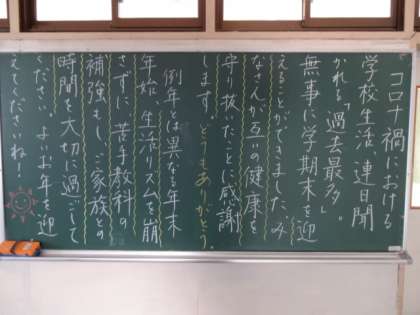 コロナ禍における
学校生活 連日聞
かれる「過去最多」。
無事に学期末を迎
えることができました。み
なさんが互いの健康を
守り抜いたことに感謝
します。どうもありがとう。
例年とは異なる年末
年始、生活リズムを崩
さずに、苦手教科の
補強もし、ご家族との
時間を大切に過ごして
ください。よいお年を迎
えてくださいね！